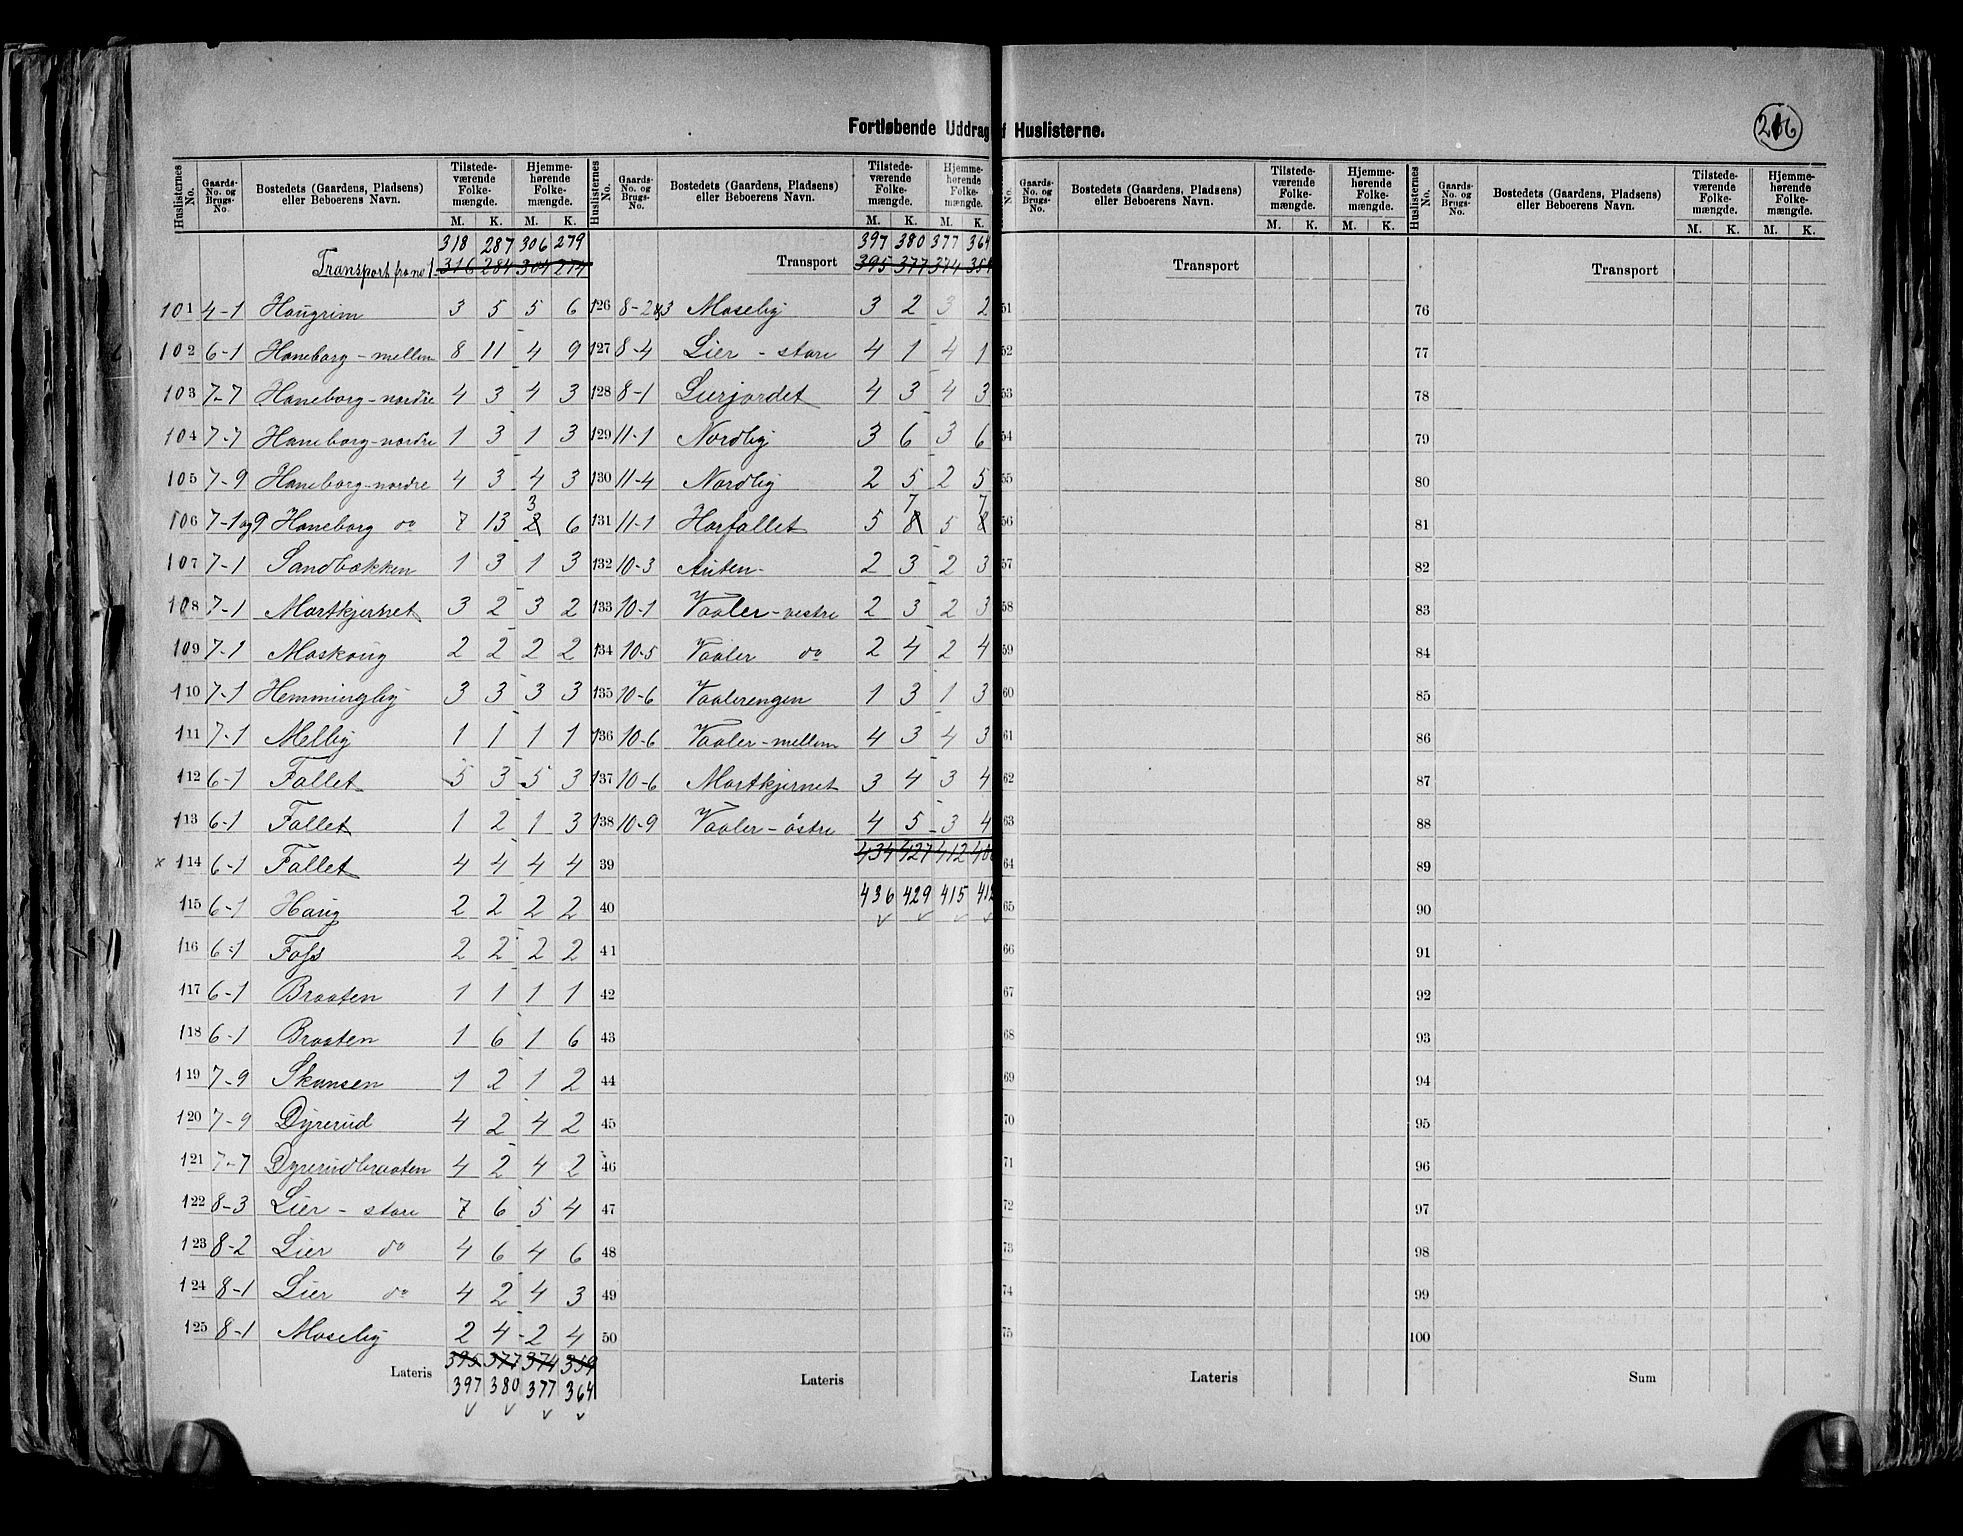 Fortløbende Uddrag af Huslisterne.
216
Huslisternes No. | Gaards-No. og Brugs-No. | Bostedets (Gaardens, Pladsens) eller Beboerens Navn. | Tilstedeværende Folkemængde. M. K. | Hjemmehørende Folkemængde. M. K.
318 287 306 279
Transport 316 284 304 274
101 4-1 Haugrim 3 5 5 6
102 6-1 Haneborg - mellem 8 11 4 9
103 7-7 Haneborg - nordre 4 3 4 3
104 7-7 Haneborg - nordre 1 3 1 3
105 7-9 Haneborg - nordre 4 3 4 3
106 7-1 og 9 Haneborg do 7 13 3 2 6
107 7-1 Sandbækken 1 3 1 3
108 7-1 Mortkjernet 3 2 3 2
109 7-1 Moskoug 2 2 2 2
110 7-1 Hemmingsby 3 3 3 3
111 7-1 Melby 1 1 1 1
112 6-1 Fallet 5 3 5 3
113 6-1 Fallet 1 2 1 3
x 114 6-1 Fallet 4 4 4 4
115 6-1 Haug 2 2 2 2
116 6-1 Foss 2 2 2 2
117 6-1 Braaten 1 1 1 1
118 6-1 Braaten 1 6 1 6
119 7-9 Skansen 1 2 1 2
120 7-9 Dyrerud 4 2 4 2
121 7-7 Dyrerudbraaten 4 2 4 2
122 8-3 Lier - store 7 6 5 4
123 8-2 Lier do 4 6 4 6
124 8-1 Lier do 4 2 4 3
125 8-1 Moseby 2 4 2 4
395 377 374 359
Lateris 397 380 377 364
Huslisternes No. | Gaards-No. og Brugs-No. | Bostedets (Gaardens, Pladsens) eller Beboerens Navn. | Tilstedeværende Folkemængde. M. K. | Hjemmehørende Folkemængde. M. K.
397 380 377 364
Transport 395 377 374 359
126 8-2&3 Moseby 3 2 3 2
127 8-4 Lier - store 4 1 4 1
128 8-1 Lierjordet 4 3 4 3
129 11-1 Nordby 3 6 3 6
130 11-4 Nordby 2 5 2 5
131 11-1 Harfallet 5 7 8 5 7 8
132 10-3 Auten 2 3 2 3
133 10-1 Vaaler - vestre 2 3 2 3
134 10-5 Vaaler do 2 4 2 4
135 10-6 Vaalerengen 1 3 1 3
136 10-6 Vaaler - mellem 4 3 4 3
137 10-6 Mortkjernet 3 4 3 4
138 10-9 Vaaler - östre 4 5 3 4
39 434 427 412
40 436 429 415 412
41
42
43
44
45
46
47
48
49
50
Lateris
No. | Gaards-No. og Brugs-No. | Bostedets (Gaardens, Pladsens) eller Beboerens Navn. | Tilstedeværende Folkemængde. M. K. | Hjemmehørende Folkemængde. M. K.
Transport
51
52
53
54
55
56
57
58
59
60
61
62
63
64
65
66
67
68
69
70
71
72
73
74
75
Lateris
Huslisternes No. | Gaards-No. og Brugs-No. | Bostedets (Gaardens, Pladsens) eller Beboerens Navn. | Tilstedeværende Folkemængde. M. K. | Hjemmehørende Folkemængde. M. K.
Transport
76
77
78
79
80
81
82
83
84
85
86
87
88
89
90
91
92
93
94
95
96
97
98
99
100
Sum